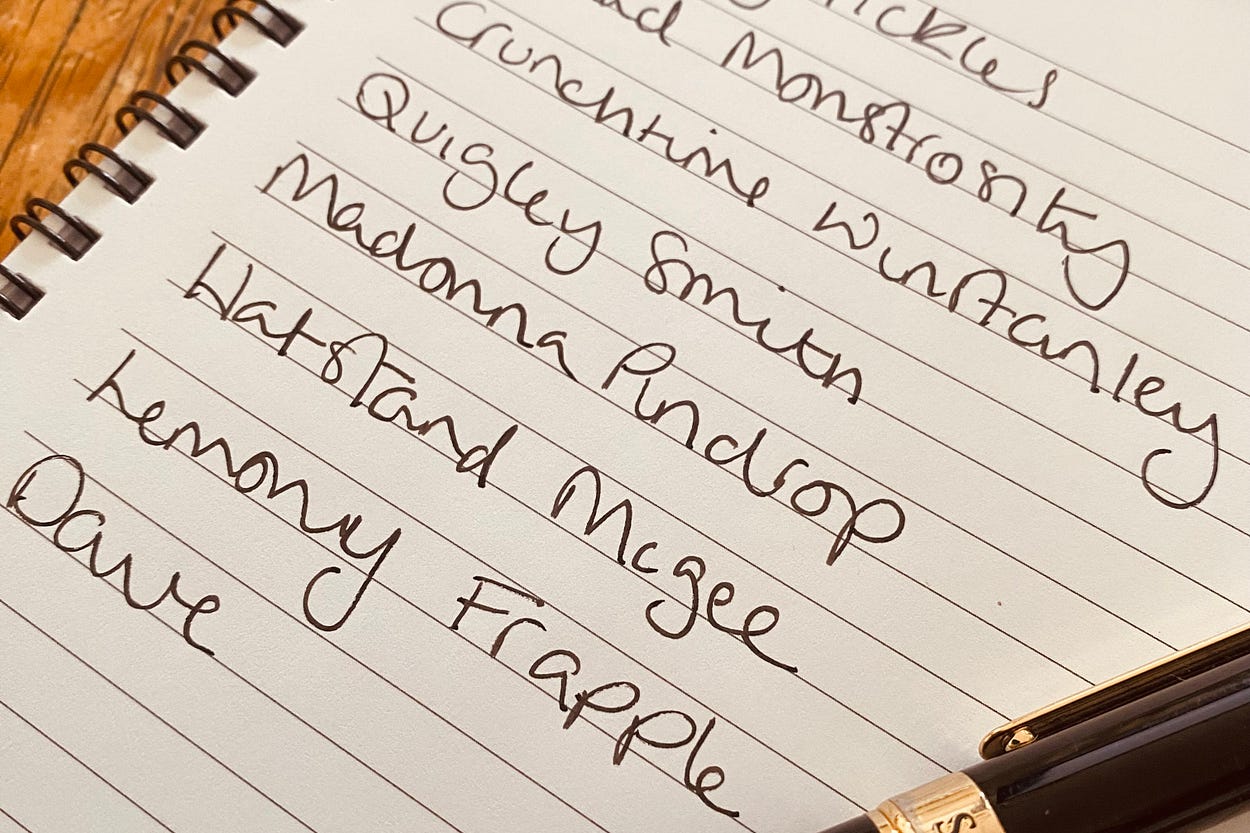 Monstrosity
Crunchtime Winstanley
Quigley Smith
Madonna Pindrop
Hatstand Mcgee
Lemony Frapple
Dave